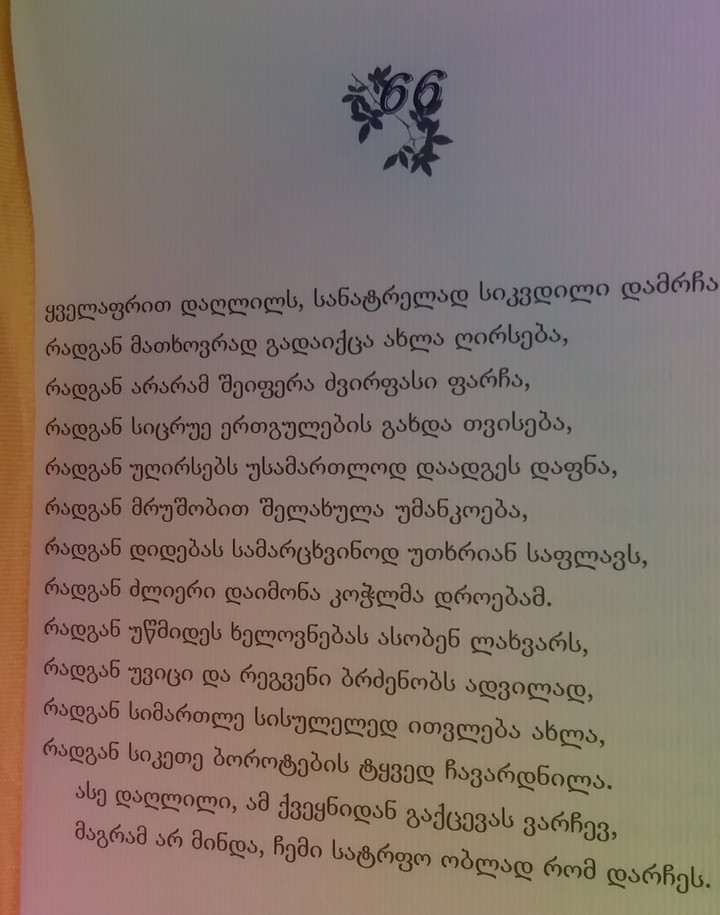 66
ყველაფრით დაღლილს, სანატრელად სიკვდილი დამრჩა
რადგან მათხოვრად გადაიქცა ახლა ღირსება,
რადგან არარამ შეიფერა ძვირფასი ფარჩა,
რადგან სიცრუე ერთგულების გახდა თვისება,
რადგან უღირსებს უსამართლოდ დაადგეს დაფნა,
რადგან მრუშობით შელახულა უმანკოება,
რადგან დიდებას სამარცხვინოდ უთხრიან საფლავს,
რადგან ძლიერი დაიმონა კოჭლმა დროებამ.
რადგან უწმიდეს ხელოვნებას ასობენ ლახვარს,
რადგან უვიცი და რეგვენი ბრძენობს ადვილად,
რადგან სიმართლე სისულელედ ითვლება ახლა,
რადგან სიკეთე ბოროტების ტყვედ ჩავარდნილა.
ასე დაღლილი, ამ ქვეყნიდან გაქცევას ვარჩევ,
მაგრამ არ მინდა, ჩემი სატრფო ობლად რომ დარჩეს.